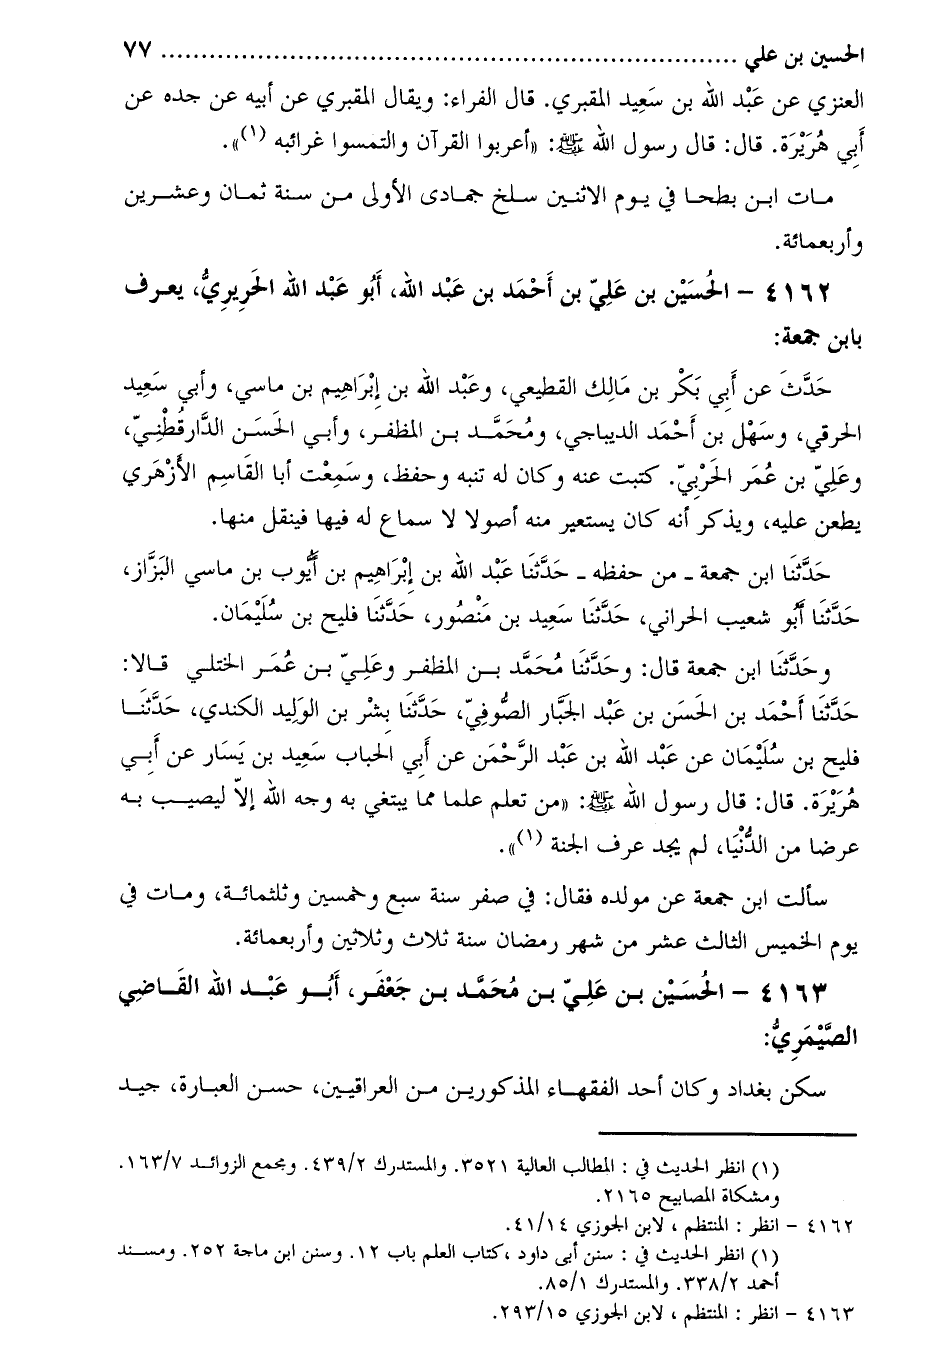 الحسين بن علي ........................................................................ ٧٧
العنزي عن عَبْد الله بن سَعِيد المقبري. قال الفراء: ويقال المقبري عن أبيه عن جده عن
أَبِي هُرَيْرَة. قال: قال رسول الله ﷺ: «أعربوا القرآن والتمسوا غرائبه (١)».
مات ابن بطحا في يوم الاثنين سلخ جمادى الأولى من سنة ثمان وعشرين
وأربعمائة.
٤١٦٢ - الحُسَيْن بن عَلِيّ بن أَحْمَد بن عَبْد الله، أَبُو عَبْد الله الحَرِيرِيُّ، يعرف
بابن جمعة:
حَدَّثَ عن أَبِي بَكْر بن مَالِك القطيعي، وعَبْد الله بن إِبْرَاهِيم بن ماسي، وأبي سَعِيد
الحرقي، وسَهْل بن أَحْمَد الديباجي، ومُحَمَّد بن المظفر، وأبي الحَسَن الدَّارقُطْنِيّ،
وعَلِيّ بن عُمَر الحَرْبِيّ. كتبت عنه وكان له تنبه وحفظ، وسَمِعْت أبا القَاسِم الأَزْهَري
يطعن عليه، ويذكر أنه كان يستعير منه أصولا لا سماع له فيها فينقل منها.
حَدَّثَنَا ابن جمعة ـ من حفظه ـ حَدَّثَنَا عَبْد الله بن إِبْرَاهِيم بن أَيُّوب بن ماسي البَزَّاز،
حَدَّثَنَا أَبُو شعيب الحراني، حَدَّثَنَا سَعِيد بن مَنْصُور، حَدَّثَنَا فليح بن سُلَيْمَان.
وحَدَّثَنَا ابن جمعة قال: وحَدَّثَنَا مُحَمَّد بن المظفر وعَلِيّ بن عُمَر الختلي قالا:
حَدَّثَنَا أَحْمَد بن الحَسَن بن عَبْد الجَبَّار الصُّوفِيّ، حَدَّثَنَا بِشْر بن الوَلِيد الكندي، حَدَّثَنَا
فليح بن سُلَيْمَان عن عَبْد الله بن عَبْد الرَّحْمَن عن أَبِي الحباب سَعِيد بن يَسَار عن أَبِي
هُرَيْرَة. قال: قال رسول الله ﷺ: «من تعلم علما مما يبتغي به وجه الله إلاّ ليصيب به
عرضا من الدُّنْيَا، لم يجد عرف الجنة (١)».
سألت ابن جمعة عن مولده فقال: في صفر سنة سبع وخمسين وثلثمائة، ومات في
يوم الخميس الثالث عشر من شهر رمضان سنة ثلاث وثلاثين وأربعمائة.
٤١٦٣ - الحُسَيْن بن عَلِيّ بن مُحَمَّد بن جَعْفَر، أَبُو عَبْد الله القَاضِي
الصَّيْمَرِيُّ:
سكن بغداد وكان أحد الفقهاء المذكورين من العراقيين، حسن العبارة، جيد
(١) انظر الحديث في : المطالب العالية ٣٥٢١. والمستدرك ٤٣٩/٢. ومجمع الزوائد ١٦٣/٧.
ومشكاة المصابيح ٢١٦٥.
٤١٦٢ - انظر : المنتظم ، لابن الجوزي ٤١/١٤.
(١) انظر الحديث في : سنن أبى داود ،كتاب العلم باب ١٢. وسنن ابن ماجة ٢٥٢. ومسند
أحمد ٣٣٨/٢. والمستدرك ٨٥/١.
٤١٦٣ - انظر : المنتظم ، لابن الجوزي ٢٩٣/١٥.